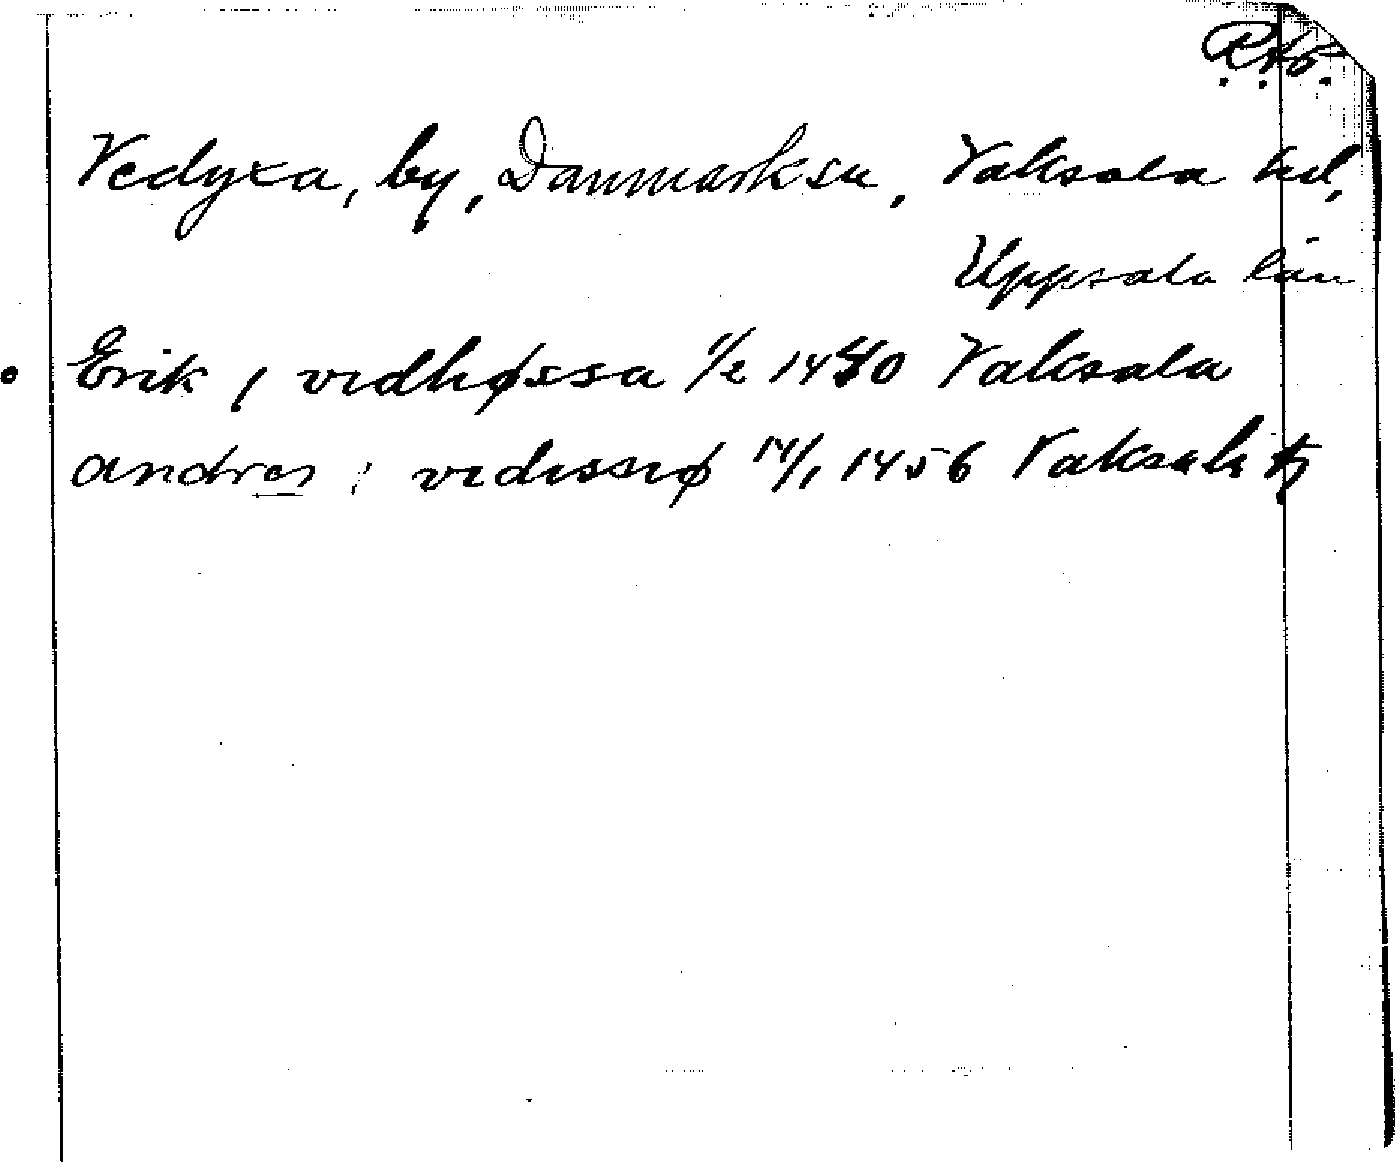 R.Ab.
Vedyxa, by, Danmarks sn, Vaksala hd,
Uppsala län
Erik i vedhøssa 1/2 1440 Vaksala
andres i vedissiø 14/1 1456 Vaksala tg